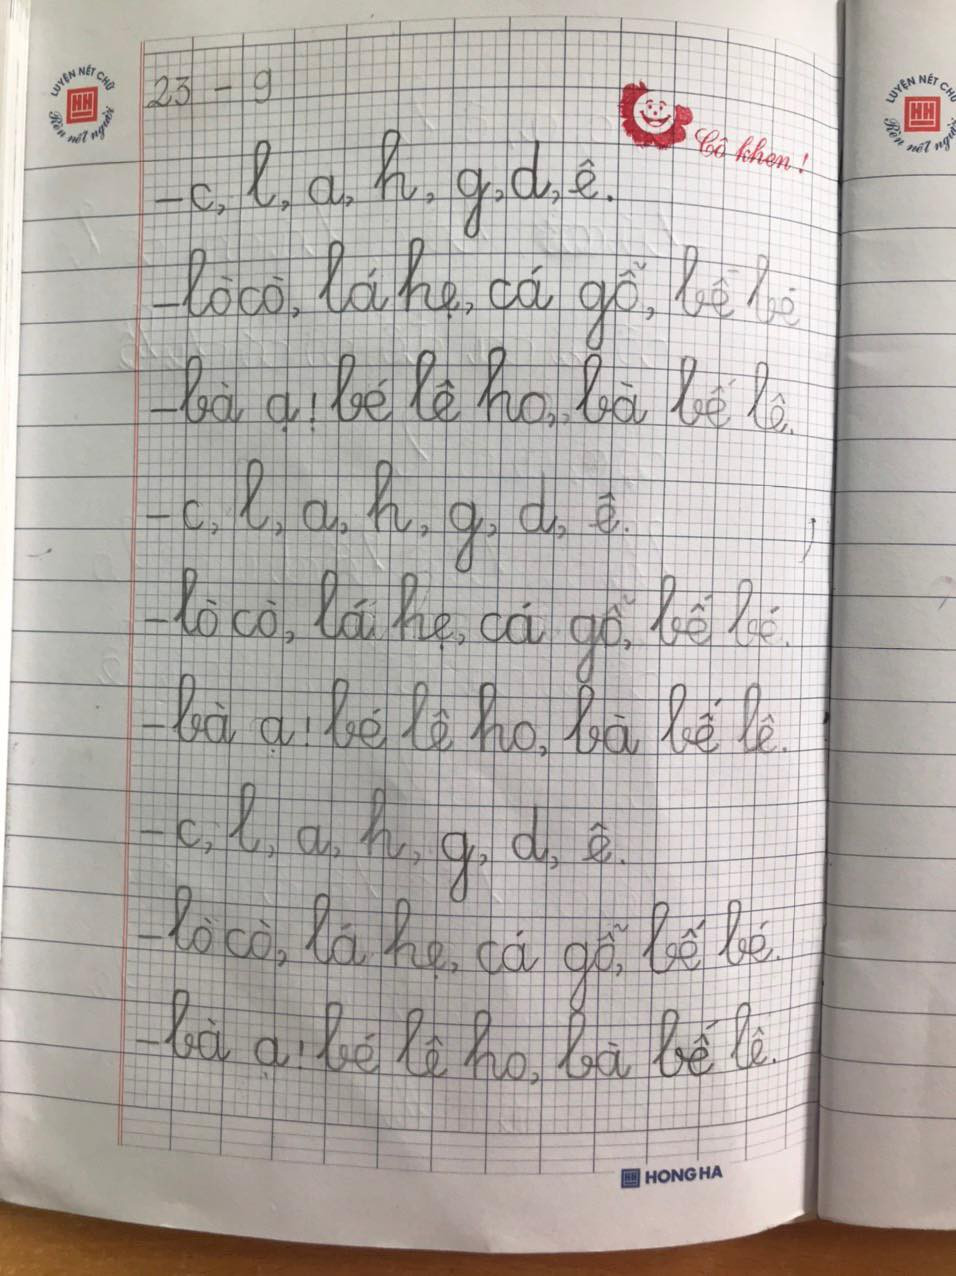 LUYỆN NẾT CHỮ
HH
Rèn nết người
23 - 9
Cô khen!
- c, l, a, h, g, d, ê.
- lò cò, lá hẹ, cá gỗ, bế bé
- bà ạ! bé lê ho, bà bế lê.
- c, l, a, h, g, d, ê.
- lò cò, lá hẹ, cá gỗ, bế bé.
- bà ạ! bé lê ho, bà bế lê.
- c, l, a, h, g, d, ê.
- lò cò, lá hẹ, cá gỗ, bế bé.
- bà ạ! bé lê ho, bà bế lê.
HH HONG HA
LUYỆN NẾT CHỮ
HH
Rèn nết người